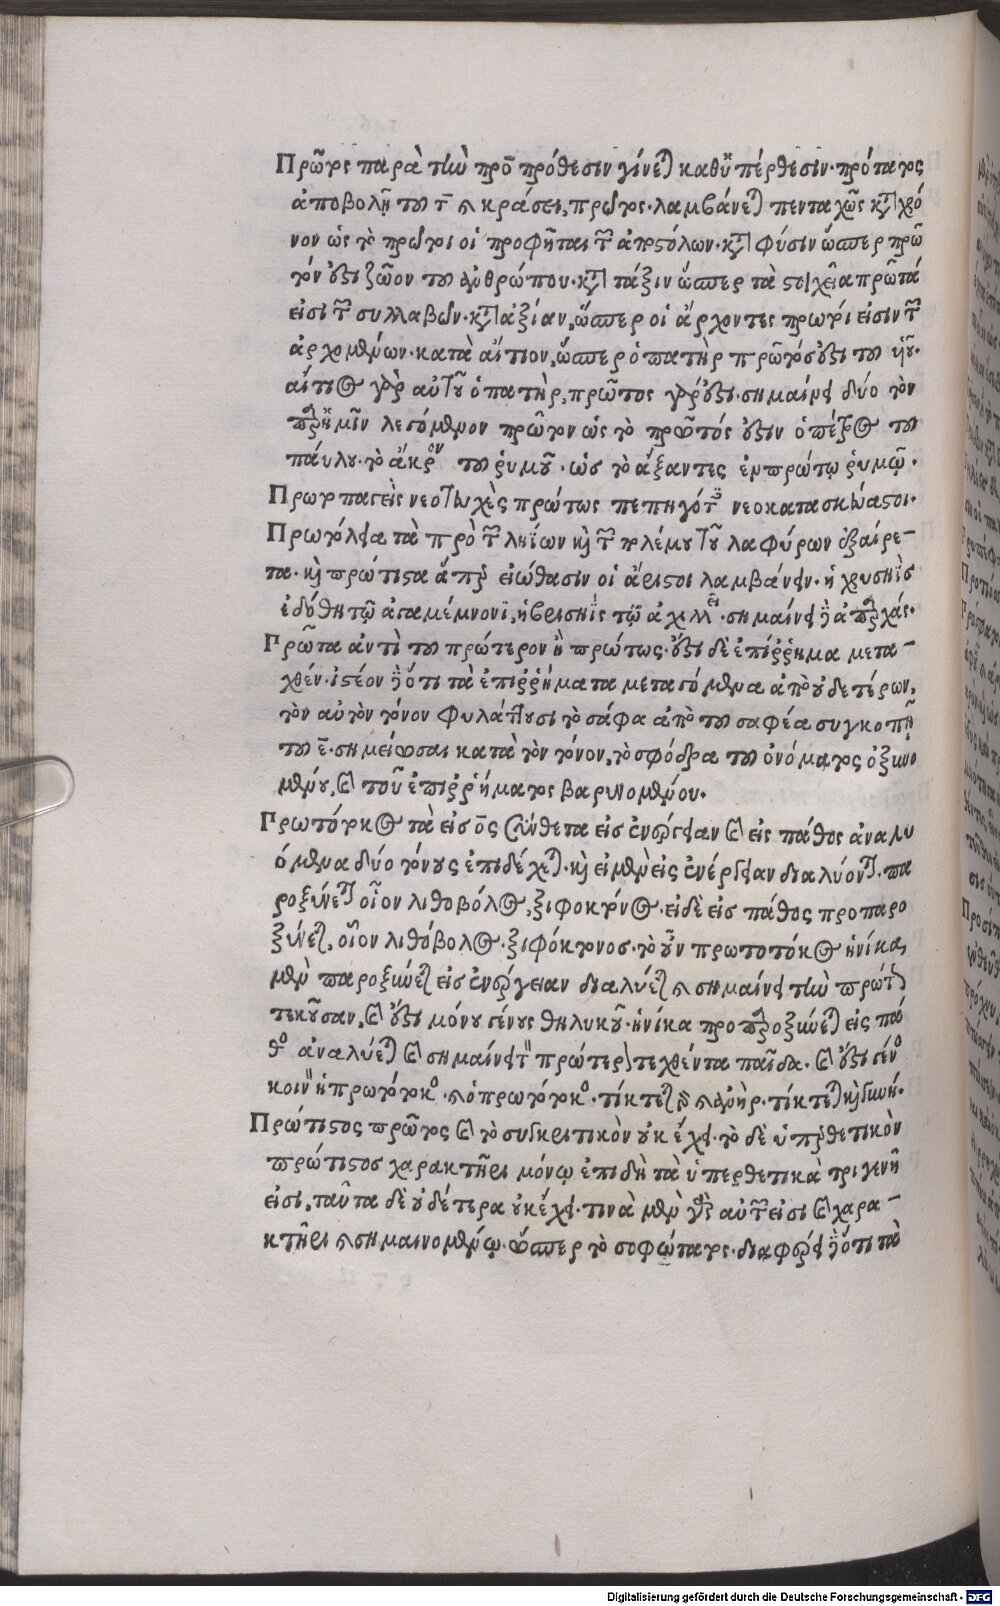 Πρῶτος παρὰ τὴν πρὸ πρόθεσιν γίνεται καθ' ὑπέρθεσιν· πρότατος
ἀποβολῇ τοῦ τ καὶ κράσει, πρῶτος· λαμβάνεται πενταχῶς κατὰ χρό
νον ὡς τὸ πρῶτοι οἱ προφῆται τῶν ἀποστόλων· κατὰ φύσιν ὥσπερ πρῶ
τόν ἐστι ζῶον τοῦ ἀνθρώπου· κατὰ τάξιν ὥσπερ τὰ στοιχεῖα πρῶτά
εἰσι τῶν συλλαβῶν· κατὰ ἀξίαν, ὥσπερ οἱ ἄρχοντες πρῶτοί εἰσιν τῶν
ἀρχομένων· κατὰ αἴτιον, ὥσπερ ὁ πατὴρ πρῶτός ἐστι τοῦ υἱοῦ·
αἴτιος γὰρ αὐτοῦ ὁ πατὴρ, πρῶτος γάρ ἐστι· σημαίνει δύο τὸν
παρ' ἡμῖν λεγόμενον πρῶτον ὡς τὸ πρῶτός ἐστιν ὁ πέτρος τοῦ
παύλου· τὸ ἄκρον τοῦ ῥυμοῦ· ὡς τὸ ἄξαντες ἐν πρώτῳ ῥυμῷ·
Πρωτοπαγεῖς νεοτευχὲς πρώτως πεπηγότων νεοκατασκεύαστοι·
Πρωτόλεια τὰ πρὸ τῶν ληΐων καὶ τῶν πολέμου τοῦ λαφύρων ἐξαίρε-
τα· καὶ πρώτιστα ἅπερ εἰώθασιν οἱ ἄριστοι λαμβάνειν· ἡ χρυσηῒς
ἐδόθη τῷ ἀγαμέμνονι, ἡ βρισηῒς τῷ ἀχιλλεῖ· σημαίνει καὶ ἀπαρχάς·
Πρῶτα ἀντὶ τοῦ πρώτερον ἢ πρώτως· ἔστι δὲ ἐπίρρημα μετα-
χθέν· ἰστέον καὶ ὅτι τὰ ἐπιρρήματα μεταγόμενα ἀπὸ οὐδετέρων,
τὸν αὐτὸν τόνον φυλάττουσι τὸ σάφα ἀπὸ τοῦ σαφέα συγκοπῇ
τοῦ ε· σημείωσαι κατὰ τὸν τόνον, τὸ σφόδρα τοῦ ὀνόματος ὀξυνο
μένου, καὶ τοῦ ἐπιρρήματος βαρυνομένου.
Πρωτότοκος τὰ εἰς ος σύνθετα εἰς ἐνέργειαν καὶ εἰς πάθος ἀναλυ
όμενα δύο τόνους ἐπιδέχεται· καὶ εἰ μὲν εἰς ἐνέργειαν διαλύονται· πα
ροξύνεται οἷον λιθοβόλος, ξιφοκτόνος· εἰ δὲ εἰς πάθος προπαρο
ξύνεται, οἷον λιθόβολος· ξιφόκτονος· τὸ οὖν πρωτοτόκος ἡνίκα
μὲν παροξύνεται εἰς ἐνέργειαν διαλύεται καὶ σημαίνει τὴν πρώτως
τεκοῦσαν, καὶ ἔστι μόνου γένους θηλυκοῦ· ἡνίκα προπαροξύνεται εἰς πά
θος ἀναλύεται καὶ σημαίνει τὸν πρώτερον τεχθέντα παῖδα· καὶ ἔστι γένος
κοινὸν ἡ πρωτότοκος· καὶ ὁ πρωτότοκος· τίκτεται δὲ καὶ ἀνὴρ· τίκτεται καὶ γυνή·
Πρώτιστος πρῶτος καὶ τὸ συγκριτικὸν οὐκ ἔχει· τὸ δὲ ὑπερθετικὸν
πρώτιστος χαρακτῆρι μόνῳ ἐπιδὴ τὰ ὑπερθετικὰ τριγενῆ
εἰσι, ταῦτα δὲ οὐδέτερα οὐκ ἔχει· τινὰ μὲν γὰρ αὐτῶν εἰσι καὶ χαρα-
κτῆρι καὶ σημαινομένῳ· ὥσπερ τὸ σοφώτατος· διαφέρει καὶ ὅτι τὰ
Digitalisierung gefördert durch die Deutsche Forschungsgemeinschaft - DFG